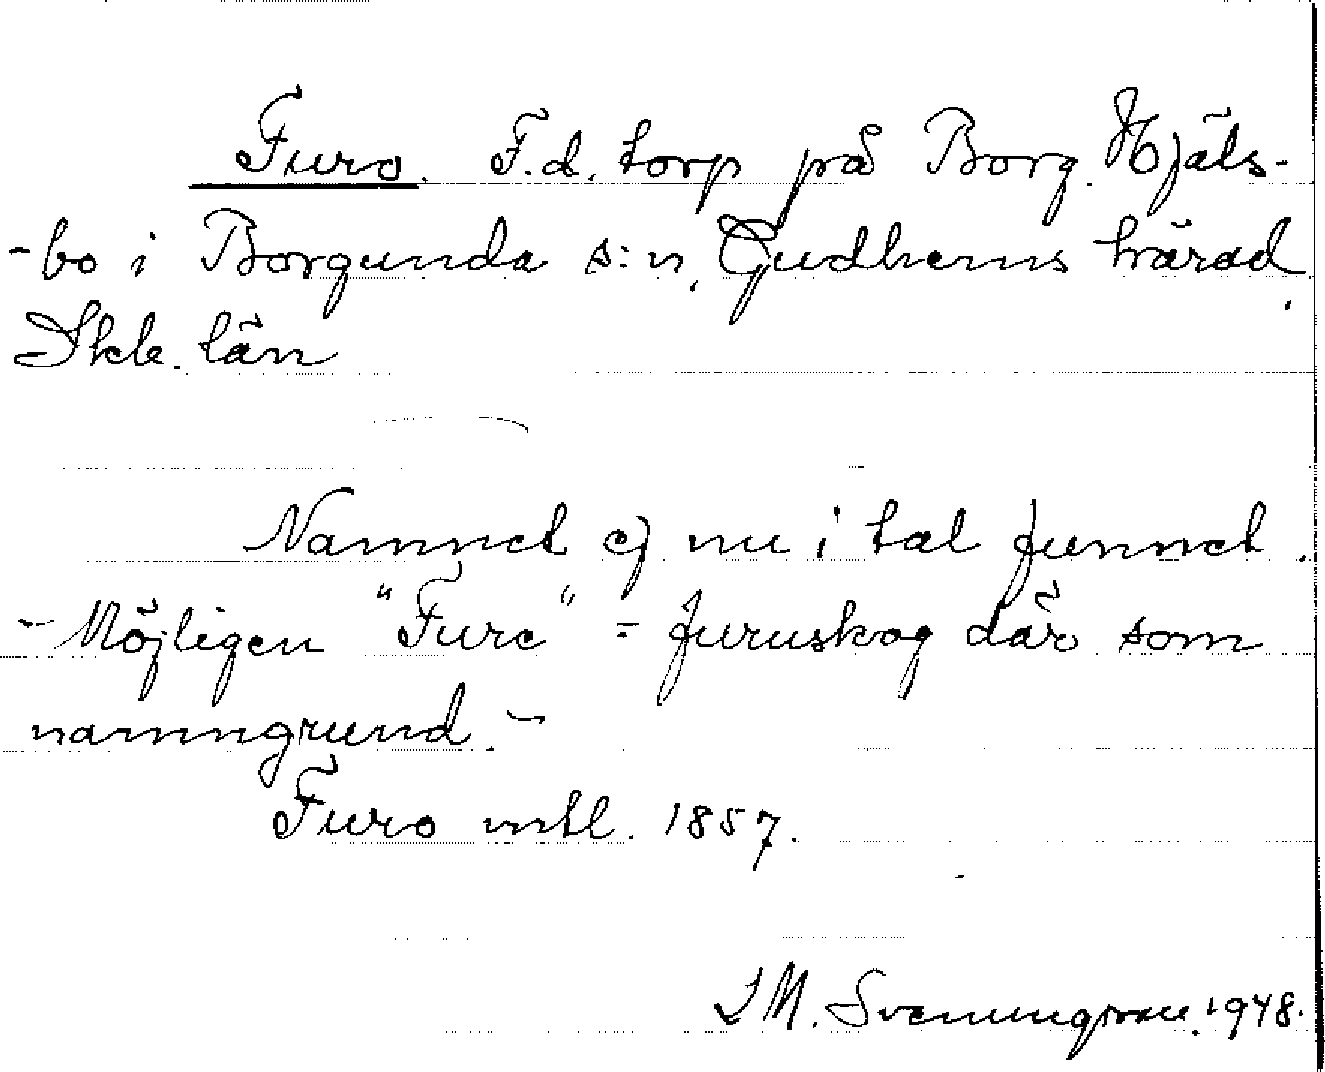 Furo. F.d. torp på Borg. Hjäls-
-bo i Borgunda s:n, Gudhems härad,
Skb. län
Namnet ej nu i tal funnet.
- Möjligen "Fure" = furuskog där som
namngrund. -
Furo mtl. 1857.
I M. Svenungsson. 1948.